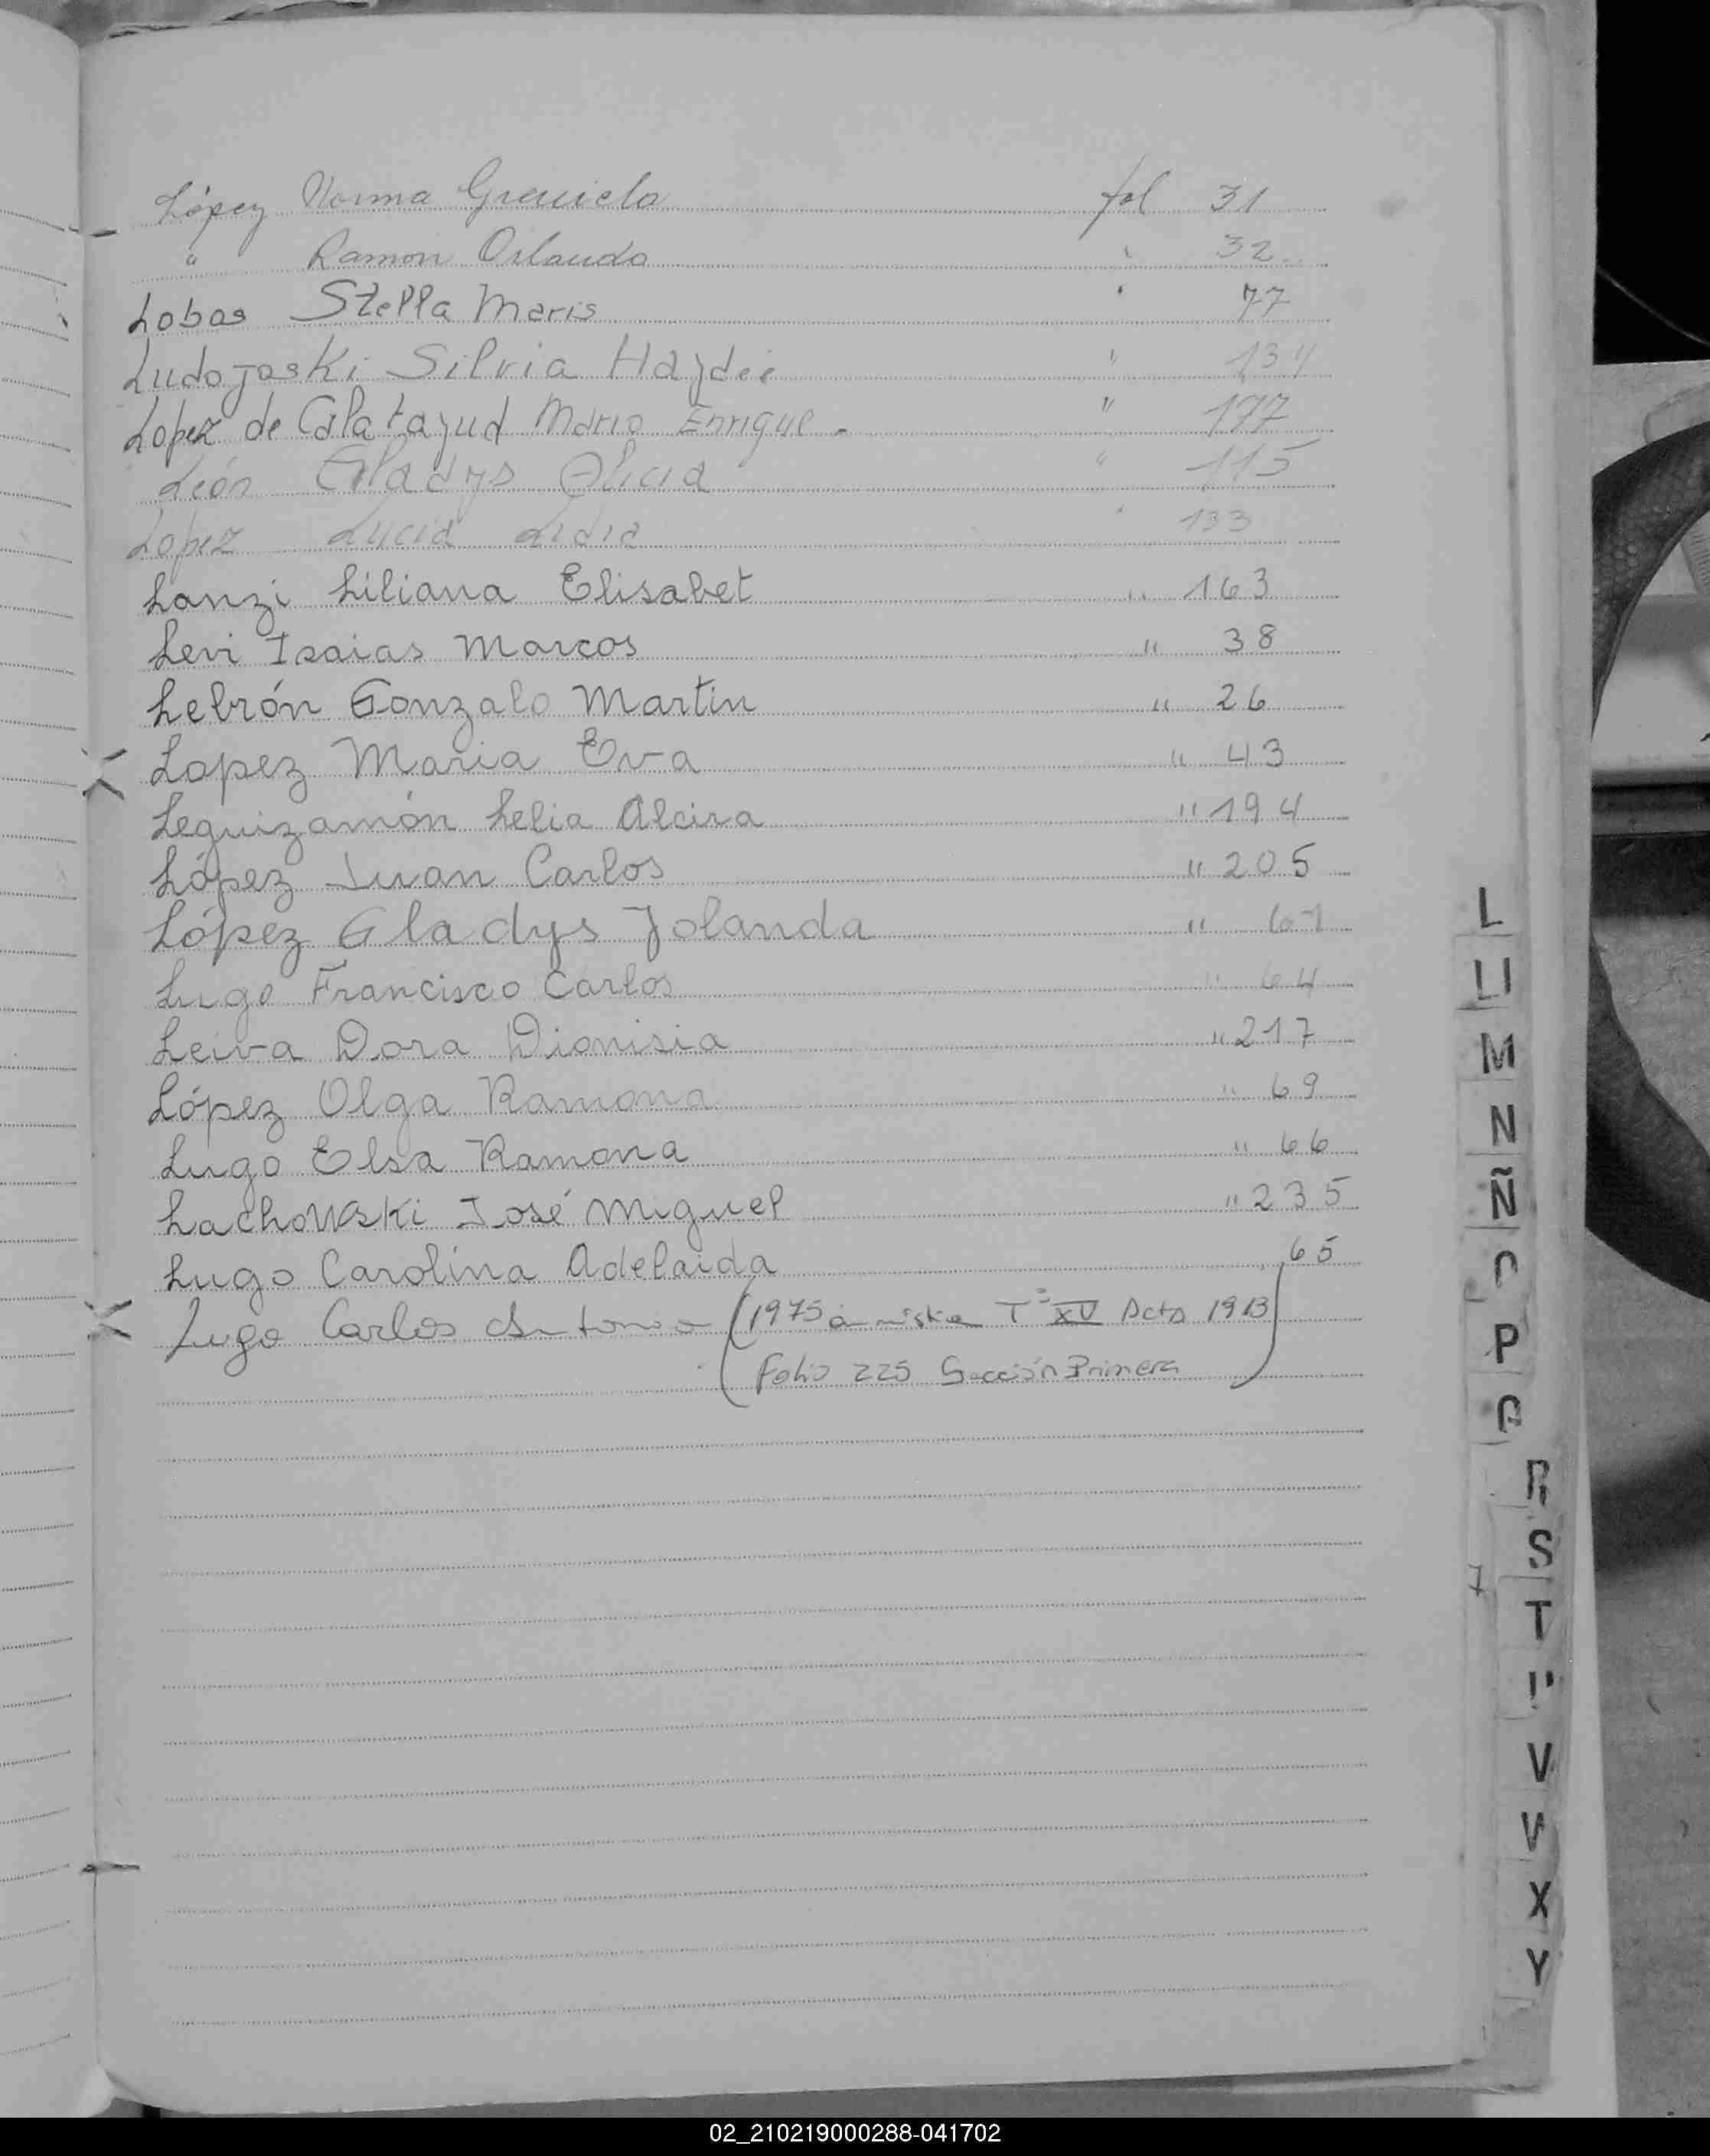 López Norma Graciela fol 31
" Ramón Orlando " 32
Lobos Stella Maris " 77
Ludojoski Silvia Haydée " 134
Lopez de Calatayud Mario Enrique - " 177
León Gladys Alicia " 115
Lopez Lucia Lidia " 133
Lanzi Liliana Elisabet " 163
Levi Isaias Marcos " 38
Lebrón Gonzalo Martin " 26
Lopez Maria Eva " 43
Leguizamón Lelia Alcira " 194
López Juan Carlos " 205
López Gladys Jolanda " 61
Lugo Francisco Carlos " 64
Leiva Dora Dionisia " 217
López Olga Ramona " 69
Lugo Elsa Ramona " 66
Lachowski José Miguel " 235
Lugo Carolina Adelaida 65
Lugo Carlos Antonio (1975 T° XV Acta 1913)
Folio 225 Sección Primera
L
Ll
M
N
Ñ
O
P
Q
R
S
T
U
V
W
X
Y
02_210219000288-041702